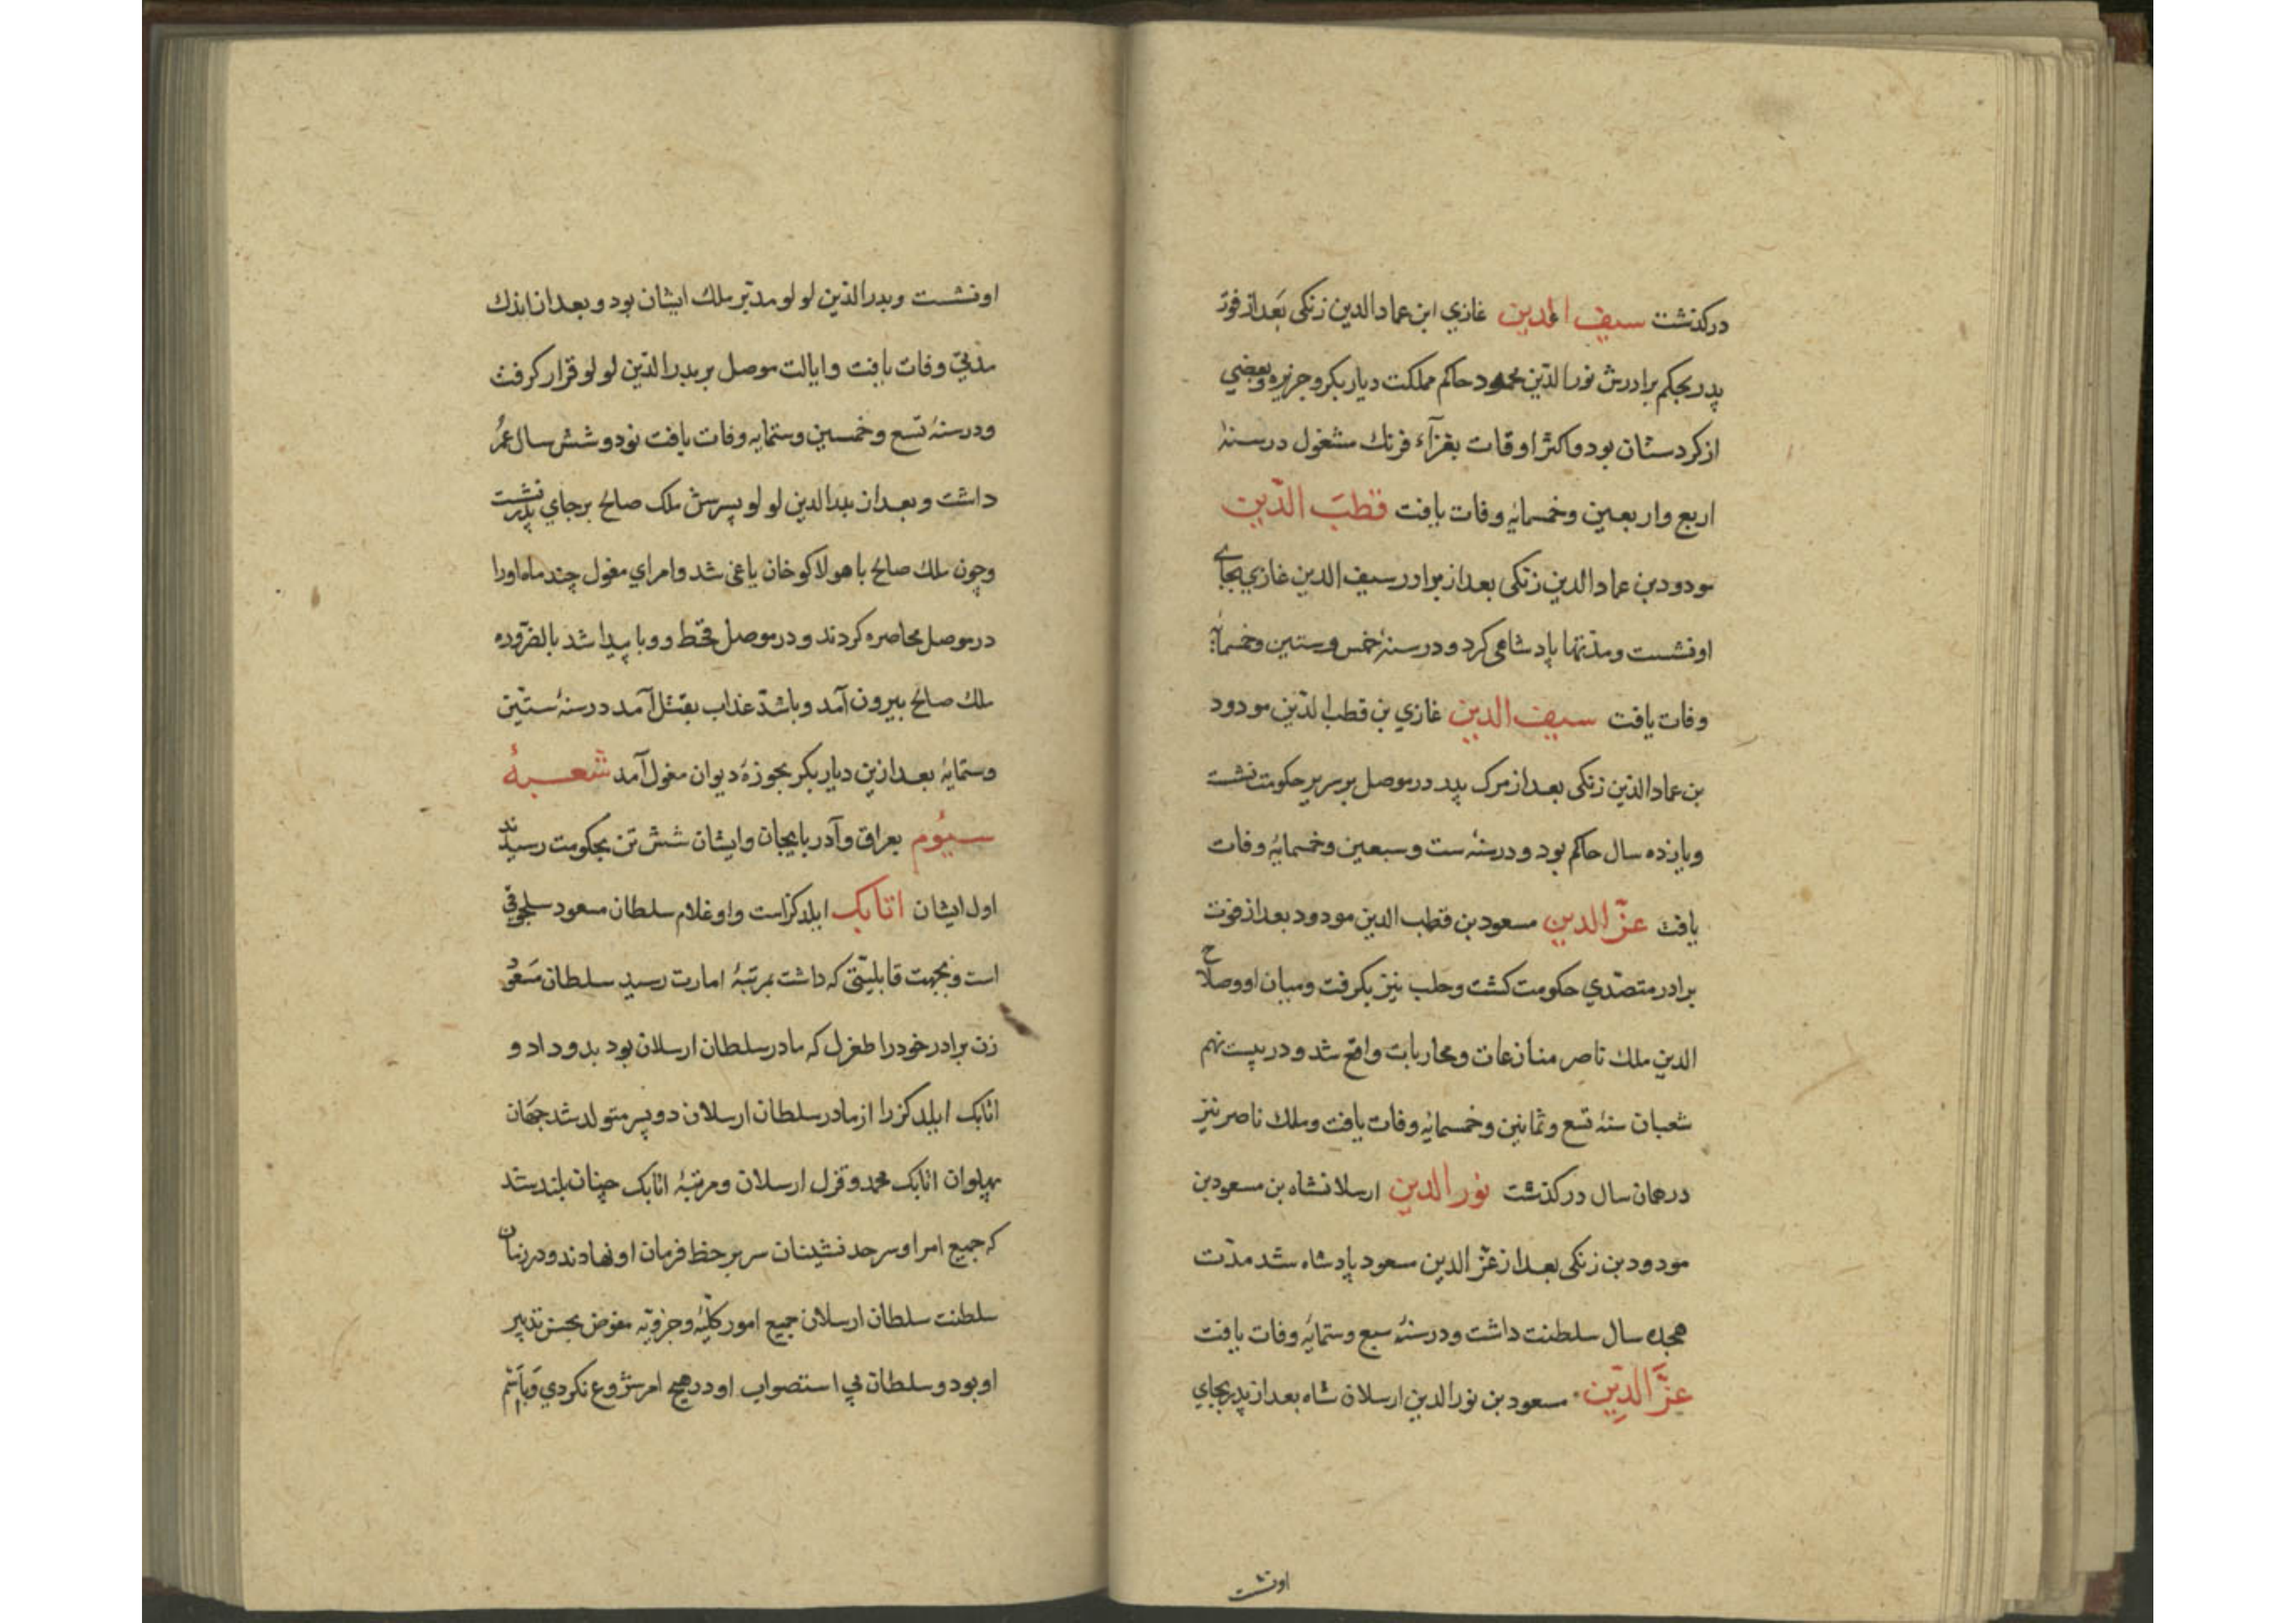 درکذشت سیف الدین غازي ابن عماد الدین زنکی بعد از فوت
پدر بحکم برادرش نور الدین محمود حاکم مملکت دیار بکر و جزیره و بعضي
از کردستان بود و اکثر اوقات بغزآء فرنك مشغول در سنۀ
اربع و اربعین و خمسمایۀ وفات یافت قطب الدّین
مودود بن عماد الدین زنکی بعد از برادر سیف الدین غازي بجاے
او نشست و مدّتها پادشاهی کرد و در سنۀ خمس و ستین و خمسمایۀ
وفات یافت سیف الدین غازي بن قطب الدّین مودود
بن عماد الدّین زنکی بعد از مرک پدر در موصل بر سریر حکومت نشست
و یازده سال حاکم بود و در سنۀ ست و سبعین و خمسمایۀ وفات
یافت عزّ الدین مسعود بن قطب الدین مودود بعد از فوت
برادر متصدّي حکومت کشت و حلب نیز بکرفت و میان او و صلاح
الدین ملك ناصر منازعات و محاربات واقع شد و در بیست نهم
شعبان سنۀ تسع و ثمانین و خمسمایۀ وفات یافت و ملك ناصر نیز
در همان سال در کذشت نور الدین ارسلانشاه بن مسعود بن
مودود بن زنکی بعد از عزّ الدین مسعود پادشاه شد مدّت
هجده سال سلطنت داشت و در سنۀ سبع و ستمایۀ وفات یافت
عزَّ الدِّین مسعود بن نور الدین ارسلان شاه بعد از پدر بجاي
اونشست
او نشست و بدر الدّین لولو مدبّر ملك ایشان بود و بعد از اندك
مدتي وفات یافت و ایالت موصل بر بدر الدّین لولو قرار کرفت
و در سنۀ تسع و خمسین و ستمایه وفات یافت نود و شش سال عمر
داشت و بعد از بدر الدین لولو پسرش ملک صالح بر جاي پدر نشست
و چون ملك صالح با هولاکو خان یاغی شد و امراي مغول چند ماه اورا
در موصل محاصره کردند و در موصل قحط و وبا پیدا شد بالضّروره
ملك صالح بیرون آمد و باشدّ عذاب بقتل آمد در سنۀ ستّین
و ستمایۀ بعد ازین دیار بکر بحوزۀ دیوان مغول آمد شعبۀ
سیوُم بعراق و آذربایجان و ایشان شش تن بحکومت رسیدند
اول ایشان اتابک ایلدکز است و او غلام سلطان مسعود سلجوقي
است و بجهت قابلیّتی که داشت بمرتبۀ امارت رسید سلطان مسعود
زن برادر خود را طغرل که مادر سلطان ارسلان بود بدو داد و
اتابک ایلدکز را از مادر سلطان ارسلان دو پسر متولد شد جهان
پهلوان اتابک محمد و قزل ارسلان و مرتبۀ اتابک چنان بلند شد
که جمیع امرا و سرحد نشینان سر بر خط فرمان او نهادند و در زمان
سلطنت سلطان ارسلان جمیع امور کلّیّه و جزویّه مفوض بحسن تدبیر
او بود و سلطان بي استصواب او در هیچ امر شروع نکردي و باسم